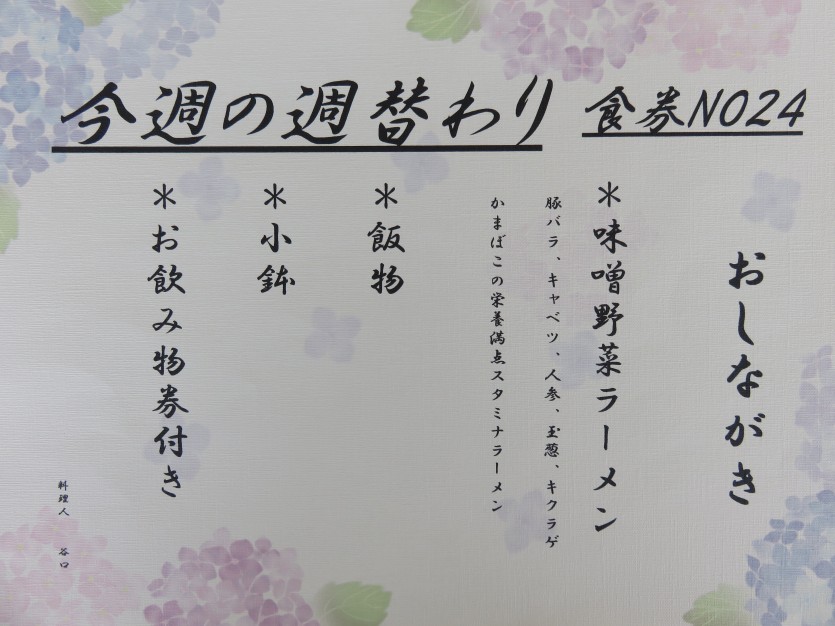 今週の週替わり
食券NO24
おしながき
＊味噌野菜ラーメン
豚バラ、キャベツ、人参、玉葱、キクラゲ
かまぼこの栄養満点スタミナラーメン
＊飯物
＊小鉢
＊お飲み物券付き
料理人 谷口